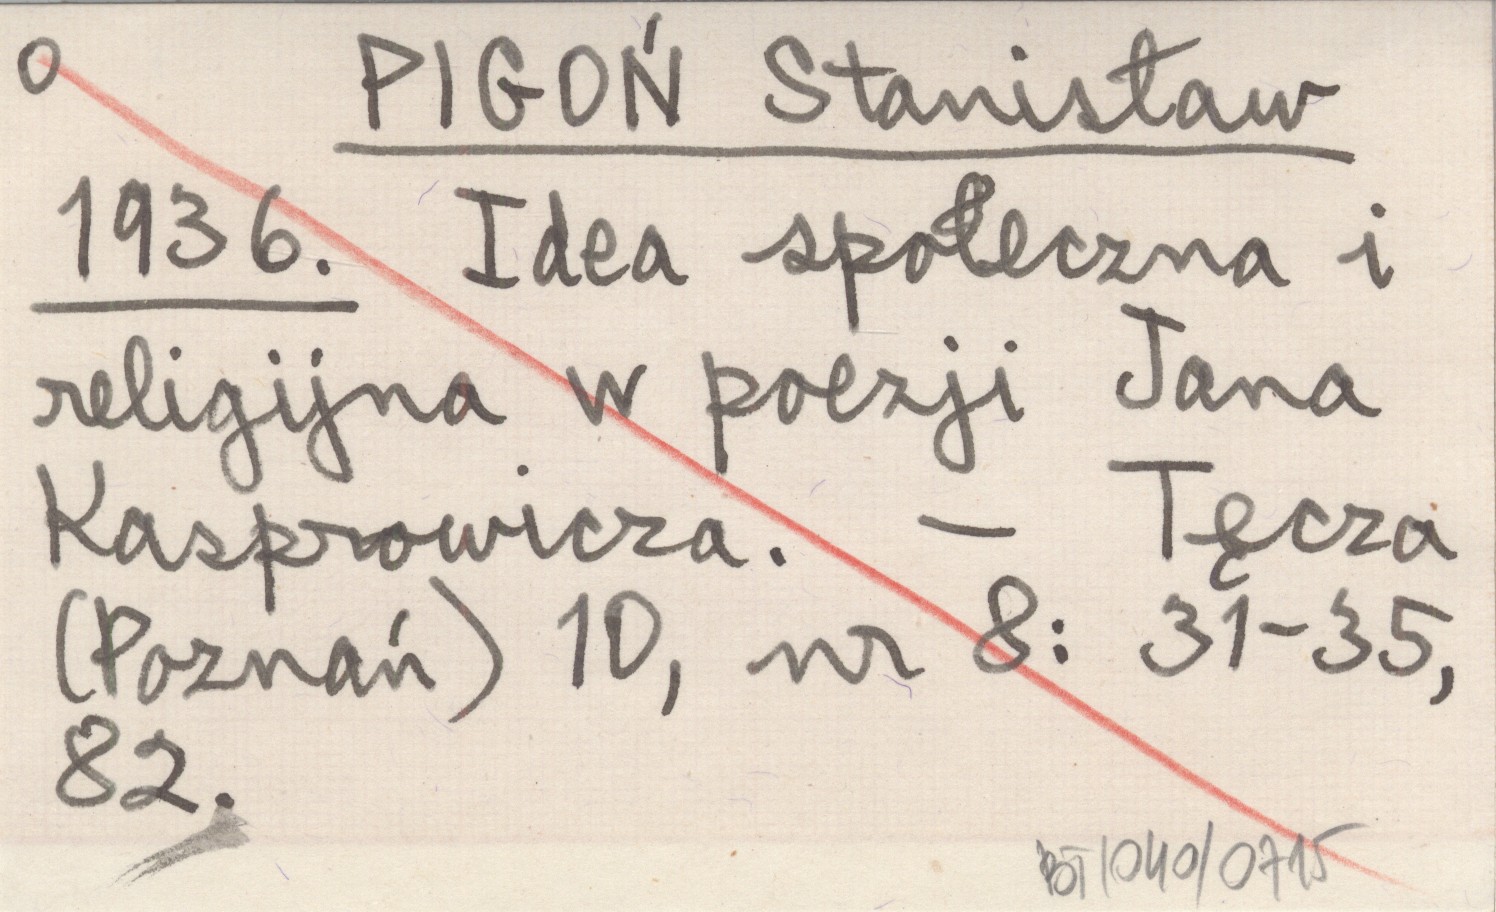 O PIGOŃ Stanisław
1936. Idea społeczna i
religijna w poezji Jana
Kasprowicza. — Tęcza
(Poznań) 10, nr 8: 31-35,
82.
BOT/040/0715